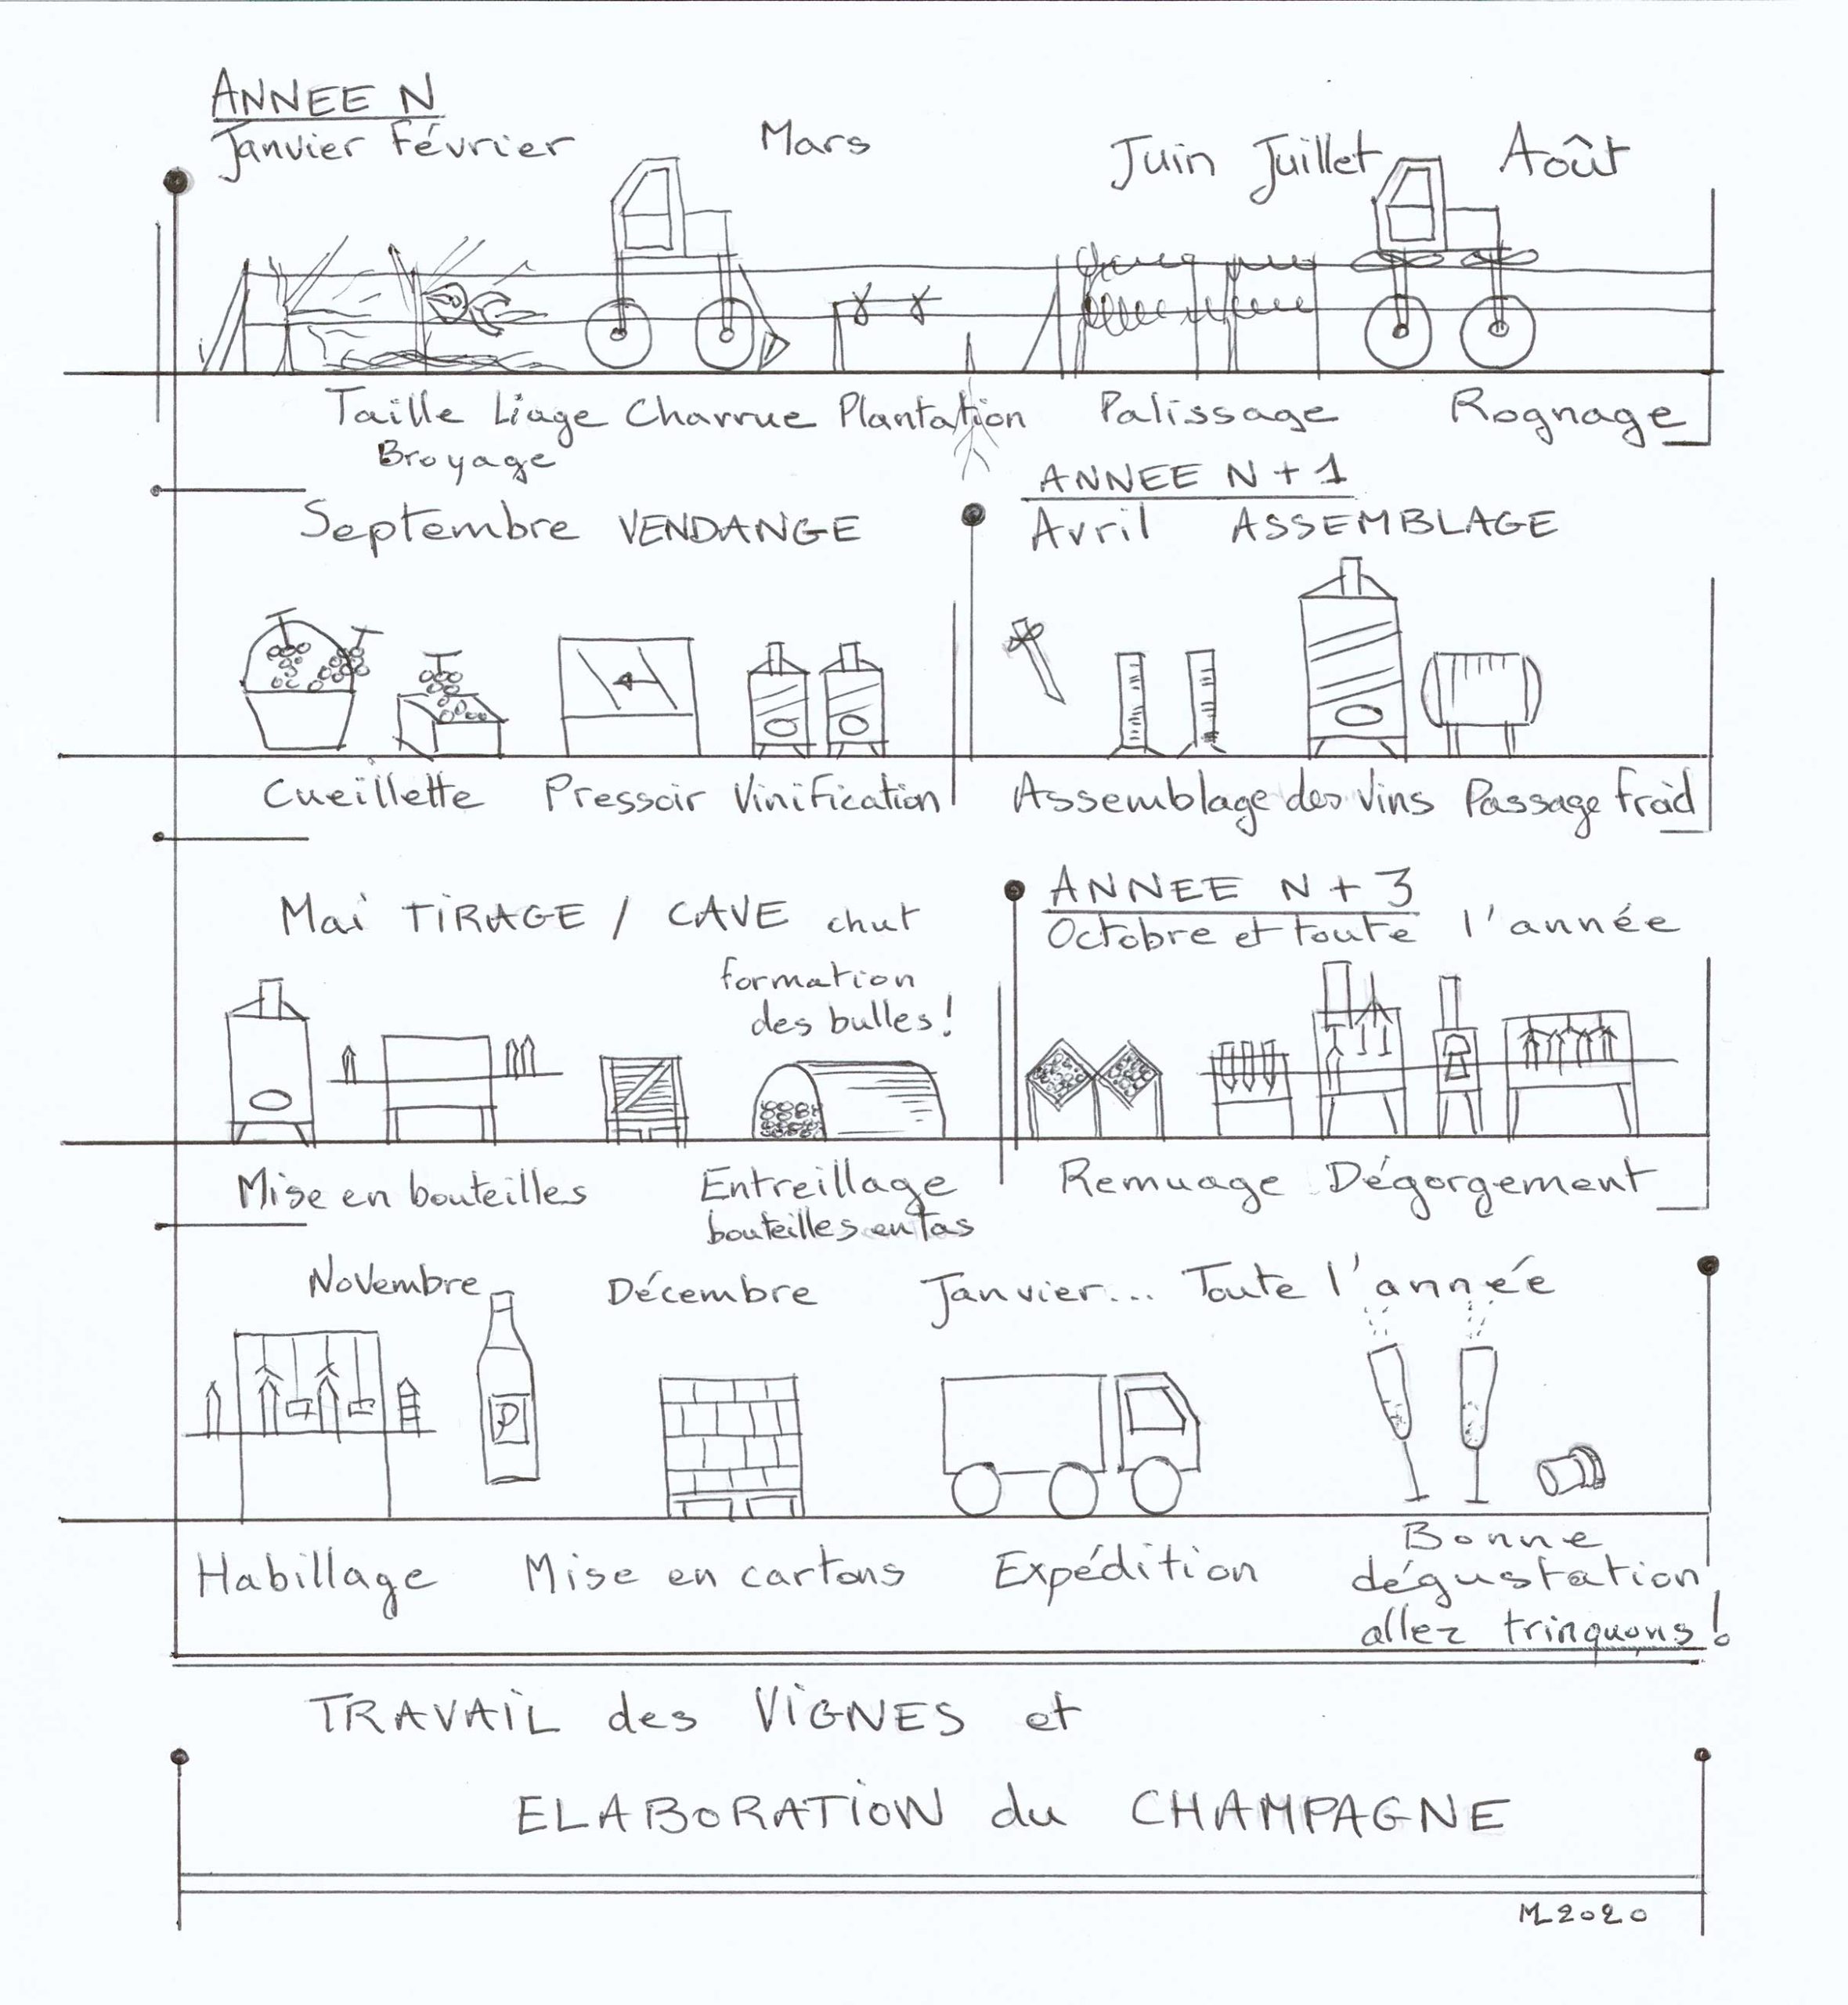 ANNEE N
Janvier Février Mars Juin Juillet Août
Taille Liage Charrue Plantation Palissage Rognage
Broyage
Septembre VENDANGE
Cueillette Pressoir Vinification
ANNEE N + 1
Avril ASSEMBLAGE
Assemblage des Vins Passage froid
Mai TIRAGE / CAVE chut
formation
des bulles!
Mise en bouteilles Entreillage
bouteilles en tas
ANNEE N + 3
Octobre et toute l'année
Remuage Dégorgement
Novembre Décembre Janvier... Toute l'année
P
Habillage Mise en cartons Expédition Bonne
dégustation
allez trinquons!
TRAVAIL des VIGNES et
ELABORATION du CHAMPAGNE
ML2020